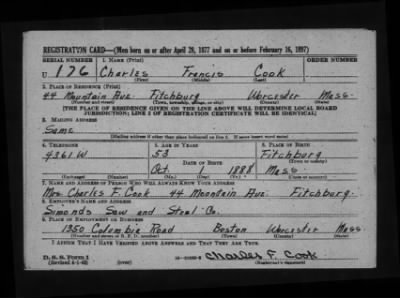 REGISTRATION CARD—(Men born on or after April 28, 1877 and on or before February 16, 1897)
SERIAL NUMBER 1. NAME (Print) ORDER NUMBER
U 176 Charles Francis Cook
(First) (Middle) (Last)
2. PLACE OF RESIDENCE (Print)
44 Mountain Ave. Fitchburg Worcester Mass.
(Number and street) (Town, township, village, or city) (County) (State)
[THE PLACE OF RESIDENCE GIVEN ON THE LINE ABOVE WILL DETERMINE LOCAL BOARD
JURISDICTION; LINE 2 OF REGISTRATION CERTIFICATE WILL BE IDENTICAL]
3. MAILING ADDRESS
Same
[Mailing address if other than place indicated on line 2. If same insert word same]
4. TELEPHONE 5. AGE IN YEARS 6. PLACE OF BIRTH
4361W 53 Fitchburg
DATE OF BIRTH (Town or county)
Oct 1 1888 Mass.
(Exchange) (Number) (Mo.) (Day) (Yr.) (State or country)
7. NAME AND ADDRESS OF PERSON WHO WILL ALWAYS KNOW YOUR ADDRESS
Mrs. Charles F. Cook 44 Mountain Ave. Fitchburg.
8. EMPLOYER'S NAME AND ADDRESS
Simonds Saw and Steel Co.
9. PLACE OF EMPLOYMENT OR BUSINESS
1350 Columbia Road Boston Worcester Mass
(Number and street or R. F. D. number) (Town) (County) (State)
I AFFIRM THAT I HAVE VERIFIED ABOVE ANSWERS AND THAT THEY ARE TRUE.
D. S. S. Form 1
(Revised 4-1-42) Charles F. Cook
(Registrant's signature)